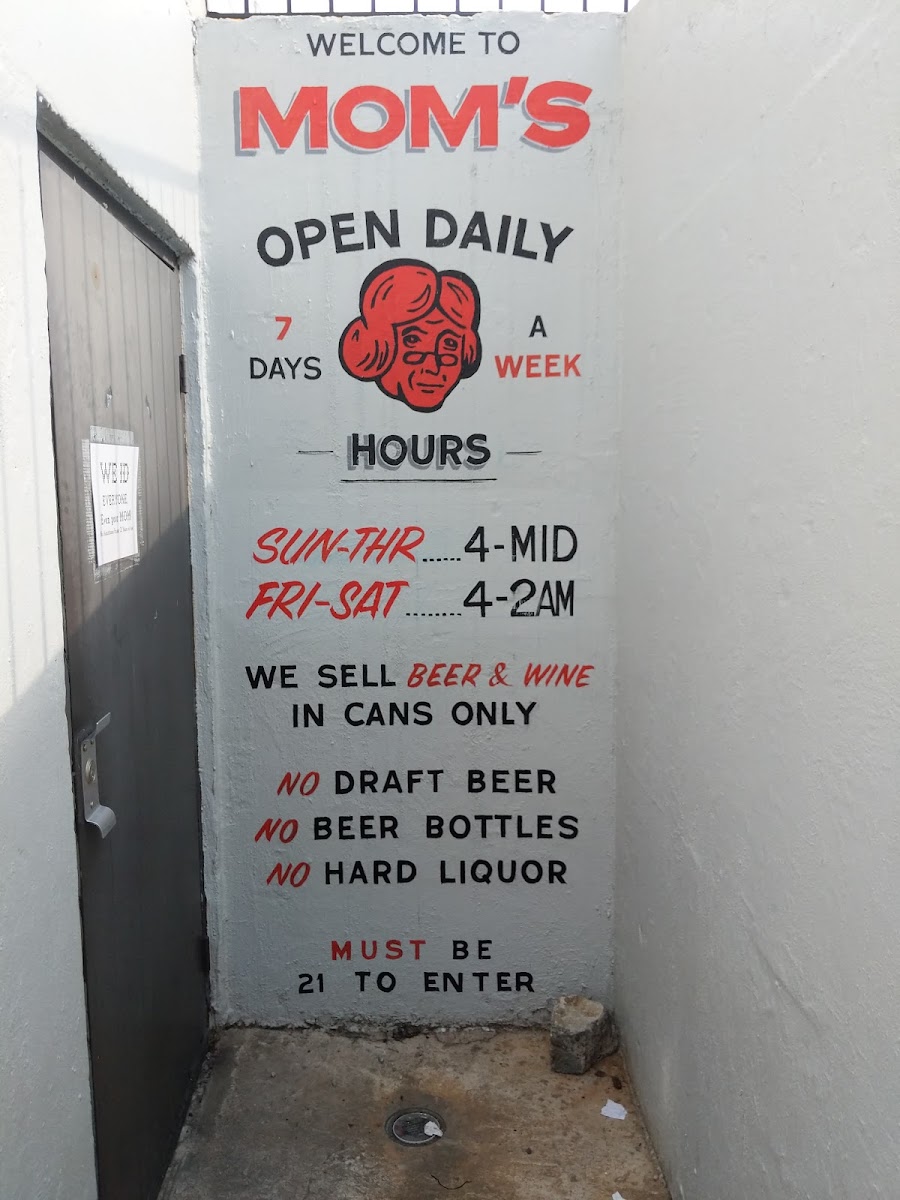 WELCOME TO
MOM'S
OPEN DAILY
7 DAYS
A WEEK
HOURS
SUN-THR......4-MID
FRI-SAT.......4-2AM
WE SELL BEER & WINE
IN CANS ONLY
NO DRAFT BEER
NO BEER BOTTLES
NO HARD LIQUOR
MUST BE
21 TO ENTER
WB ID
EVERYONE
Even your MOM